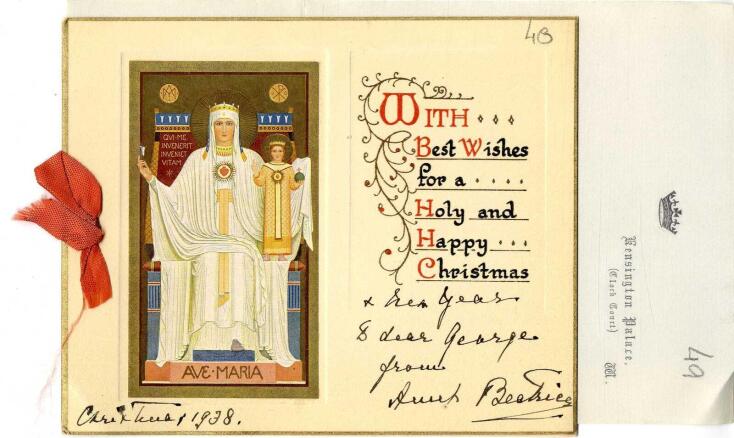 48
QUI·ME
INVENERIT
INVENIET
VITAM
AVE·MARIA
WITH
Best Wishes
for a
Holy and
Happy
Christmas
& New Year
to dear George
from
Aunt Beatrice
Christmas 1938.
Kensington Palace,
(Clock Court)
W.
49